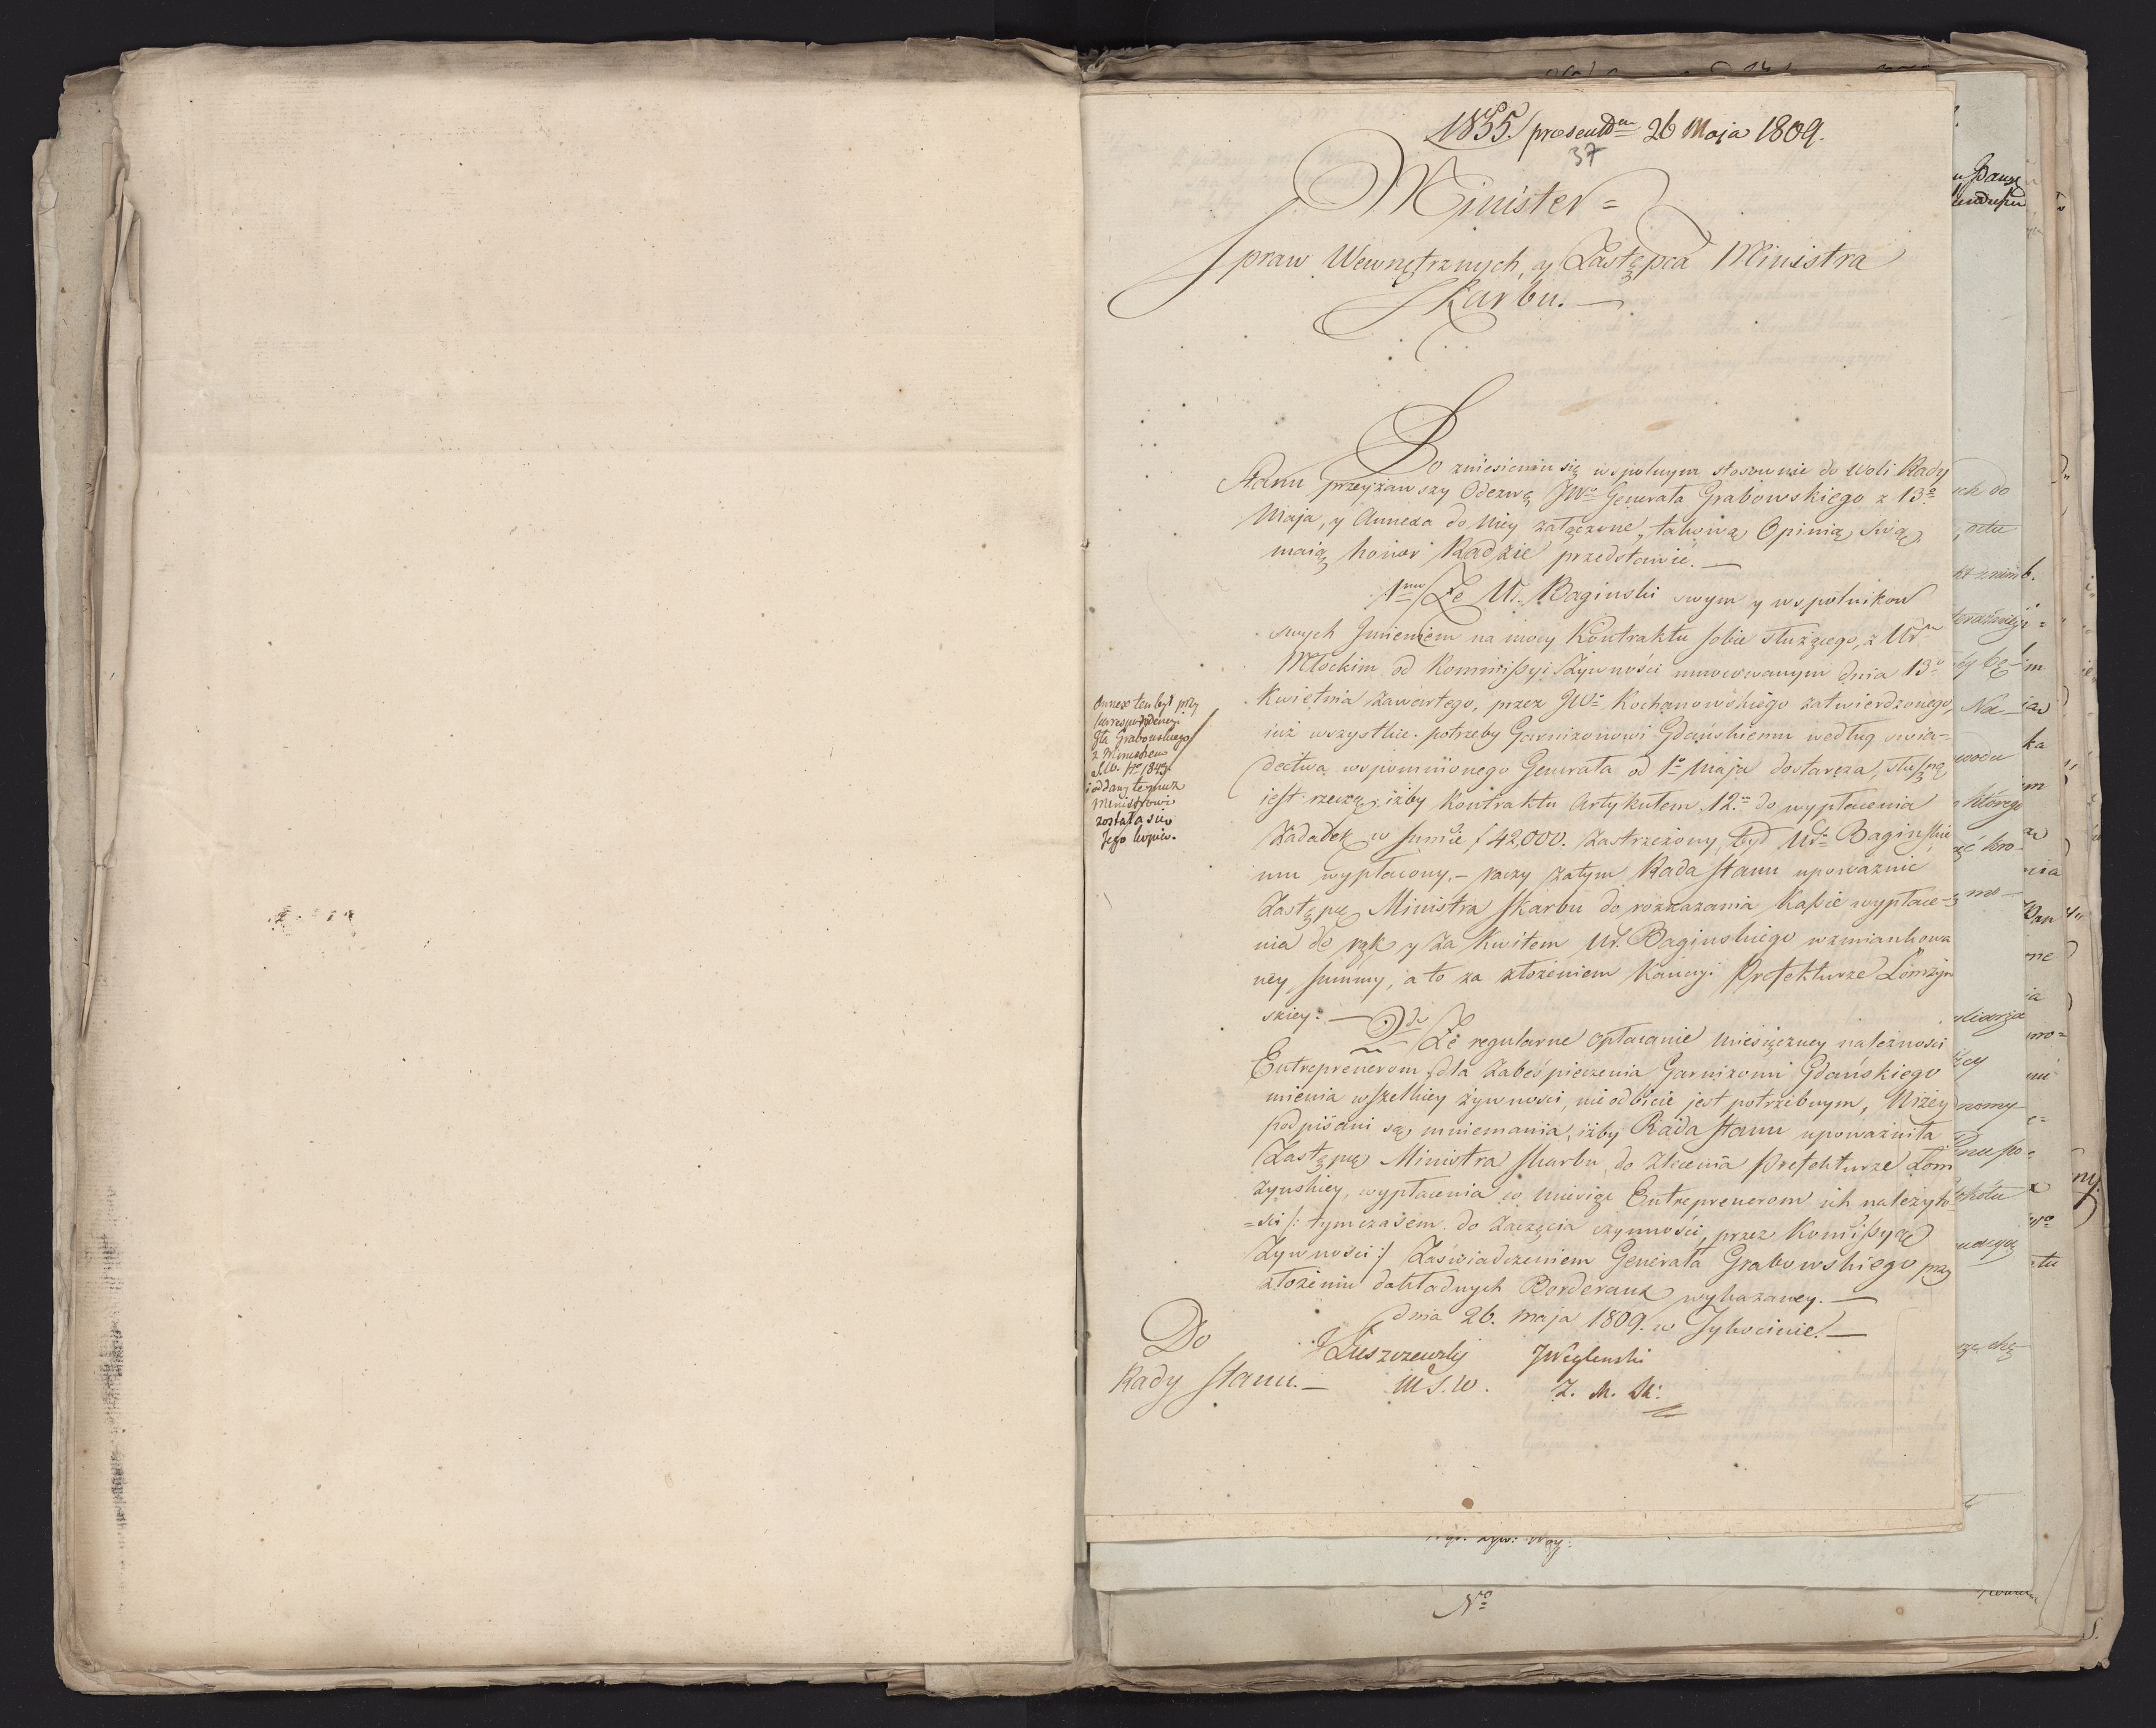 1855. presentm 26 Maja 1809.
37
Minister =
Spraw Wewnętrznych, y Zastępca Ministra
Skarbu. —
Po zniesieniu się wspolnym stosownie do woli Rady
Stanu przeyżawszy Odezwę JWo Generała Grabowskiego z 13o
Maja, y Annexa do Niey załączone, takową Opinią swą
maią honor Radzie przedstawić. —
1mo Że Ur. Baginski swym y wspolnikow
swych Jmieniem na mocy Kontraktu sobie służącego, z Ur
Młockim od Kommissyi Żywności umocowanym dnia 13o
Kwietnia zawartego, przez JWo Kochanowskiego zatwierdzonego,
iuż wszystkie potrzeby Garnizonowi Gdańskiemu według swia=
dectwa wspomnionego Generała od 1o Maja dostarcza, słuszną
jest rzeczą, iżby Kontraktu Artykułem 12m do wypłacenia
Zadatek w summie f 42,000. zastrzeżony, był Uro Baginskie
mu wypłacony, — raczy zatym Rada Stanu upoważnić
Zastępcę Ministra Skarbu do rozkazania Kassie wypłace=
nia do rąk y za Kwitem Ur. Baginskiego wzmiankowa
ney summy, a to za złożeniem Kaucyi Prefekturze Łomżyn
skiey. — 2do Że regularne opłacanie miesięczney należności
Entreprenerom dla zabeśpieczenia Garnizonu Gdańskiego
mienia wszelkiey żywności, nieodbicie jest potrzebnym, Niżey
podpisani są mniemania, iżby Rada Stanu upoważniła
Zastępcę Ministra Skarbu do zlecenia Prefekturze Łom
żynskiey, wypłacenia co miesiąc Entreprenerom ich należyto
=ści /: tymczasem do zaczęcia czynności, przez Kommissyą
Żywności :/ Zaświadczeniem Generała Grabowskiego przy
złożeniu dokładnych Borderaux wykazaney. —
dnia 26. maja 1809. w Tykocinie. —
Do
Rady Stanu. —
J Łuszczewski
M S. W.
JWęglenski
Z. M. Sk:
Annex ten był przy
korrespondencyi
Gła Grabowskiego
z Ministrem
No 1843.
i oddany temuż
Ministrowi
została się
Jego kopia.
No